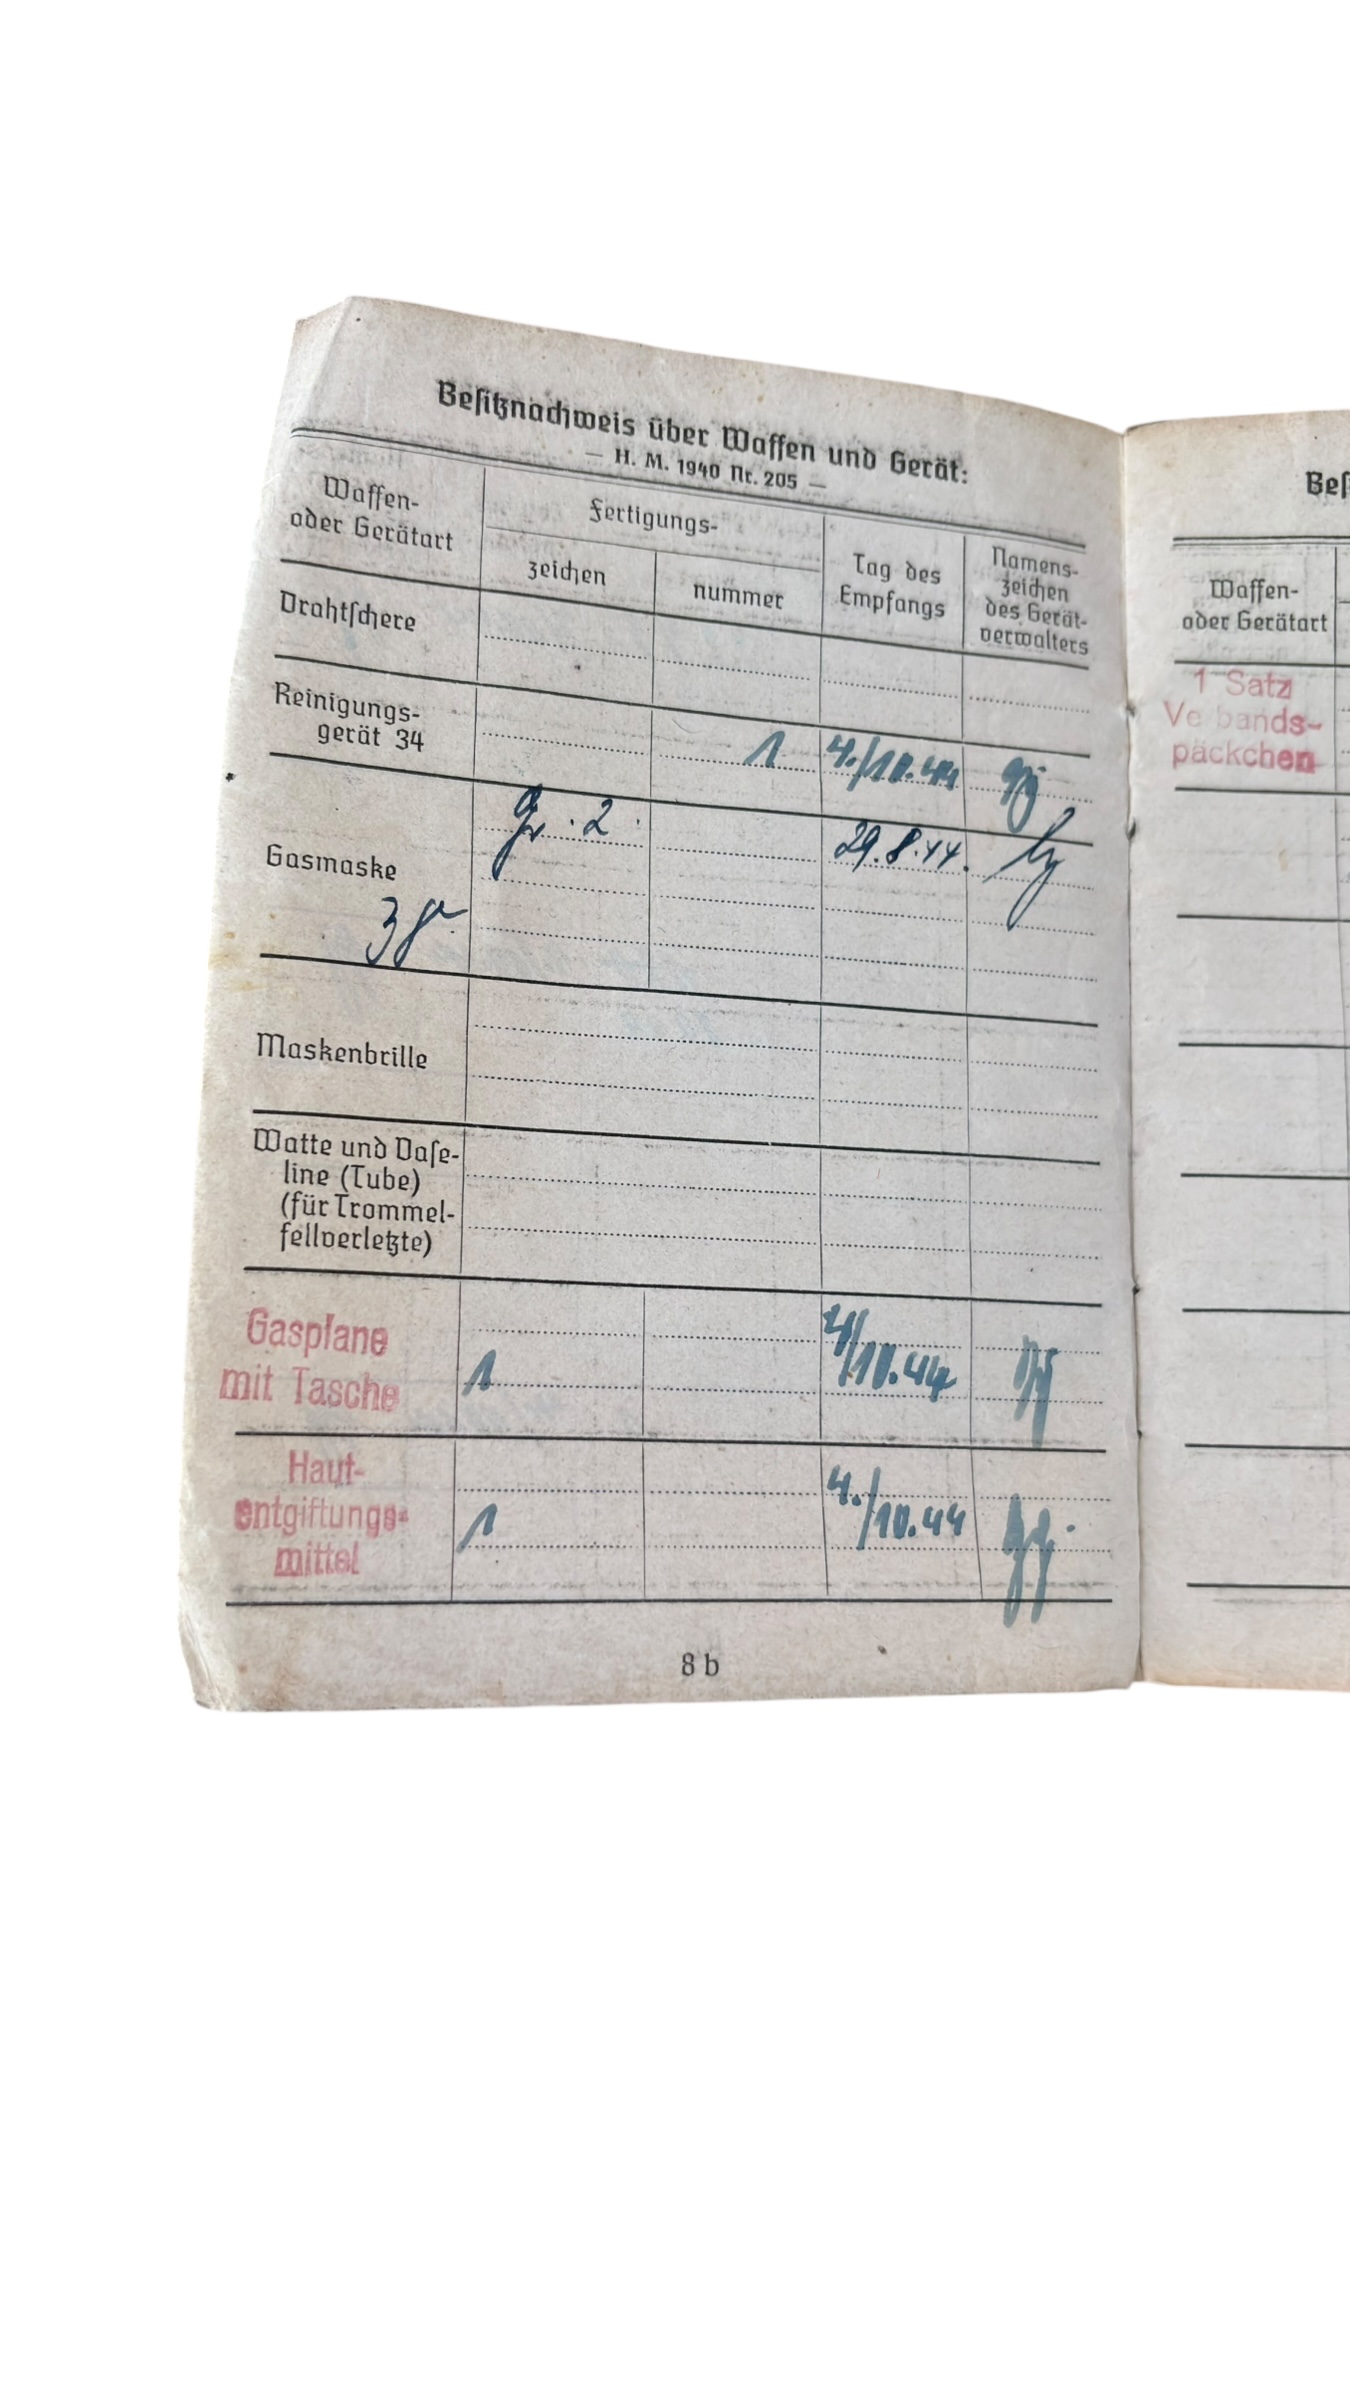 Besitznachweis über Waffen und Gerät:
— H. M. 1940 Nr. 205 —
Waffen-
oder Gerätart
Fertigungs-
zeichen
nummer
Tag des
Empfangs
Namens-
zeichen
des Gerät-
verwalters
Drahtschere
Reinigungs-
gerät 34
1
4./10.44
Gasmaske
Gr. 2
29.8.44.
Maskenbrille
Watte und Vase-
line (Tube)
(für Trommel-
fellverletzte)
Gasplane
mit Tasche
1
4/10.44
Haut-
entgiftungs-
mittel
1
4./10.44
8 b
Bes
Waffen-
oder Gerätart
1 Satz
Verbands-
päckchen